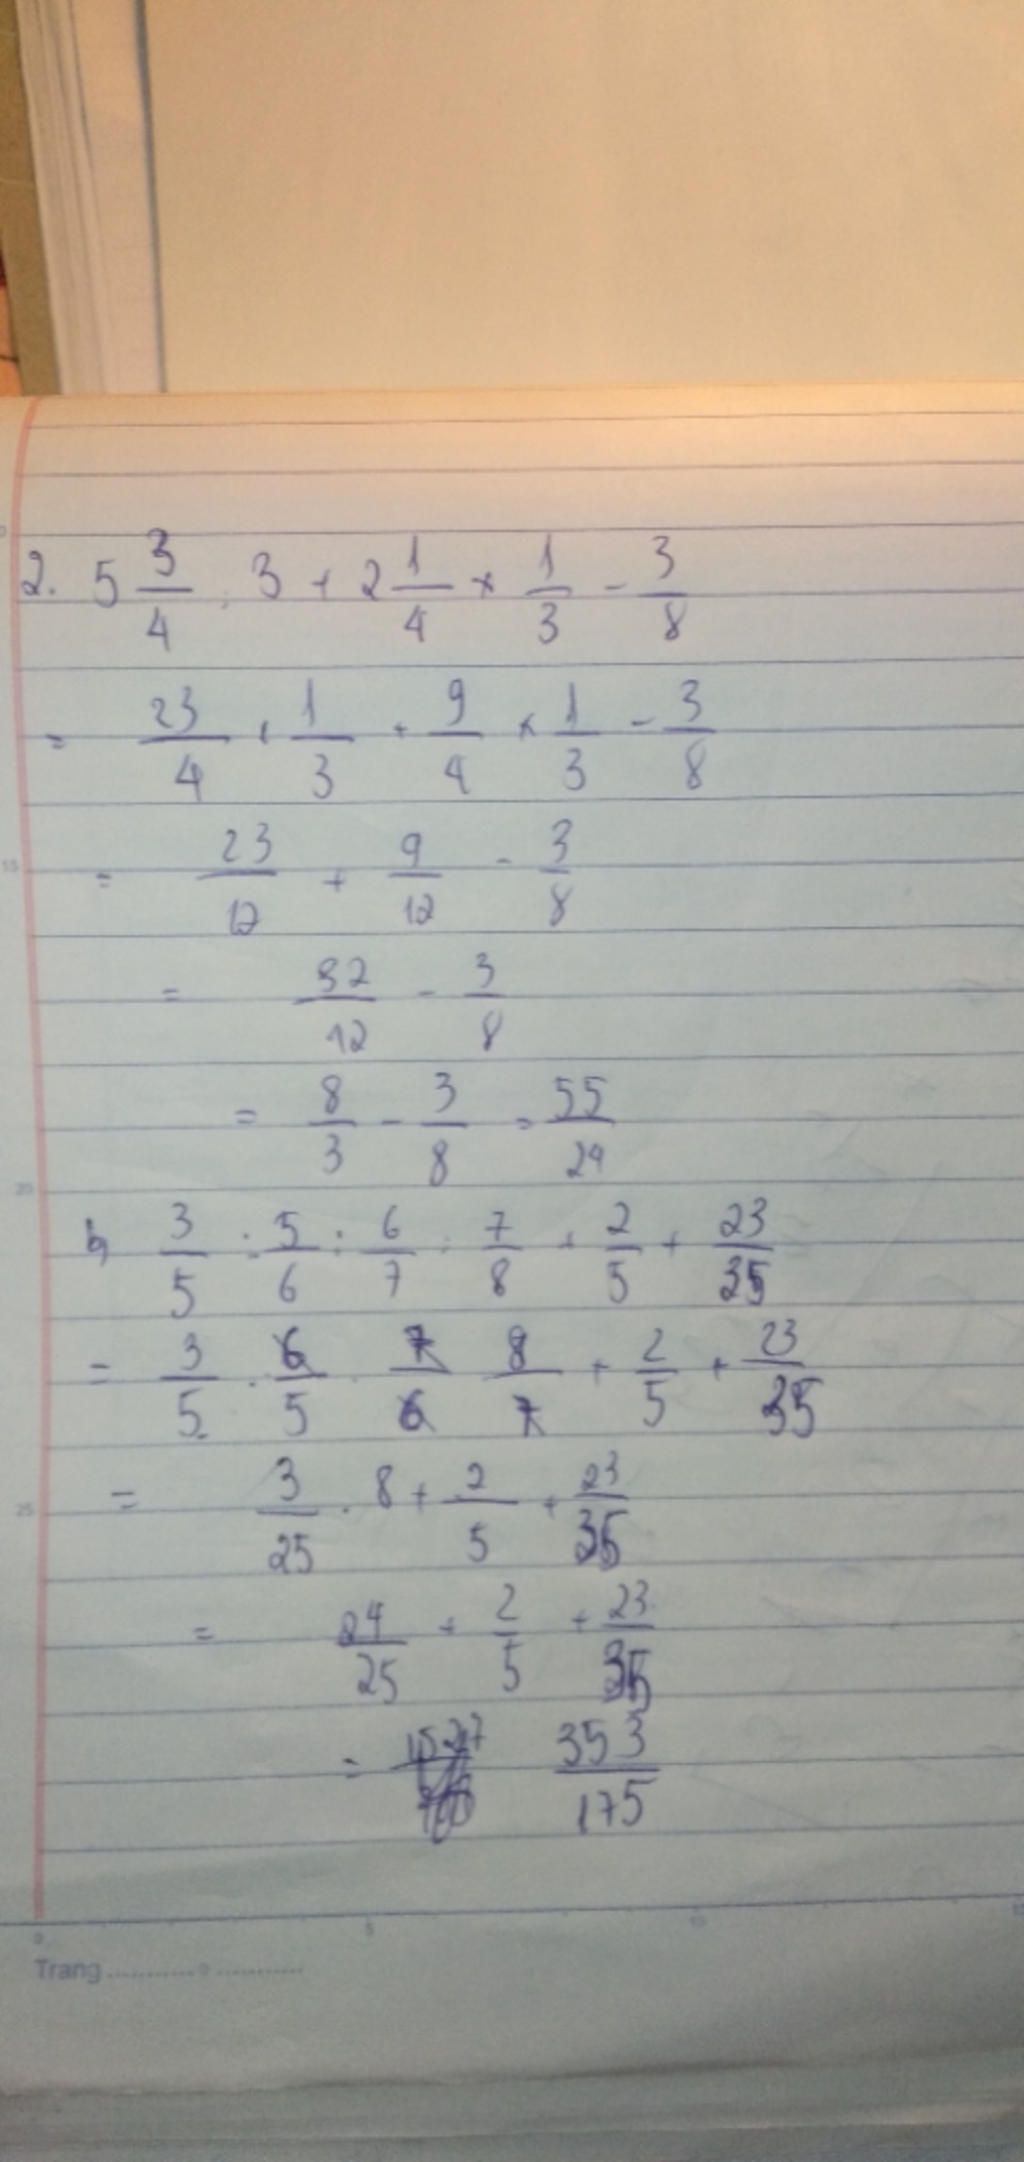 2. 5 3/4 : 3 + 2 1/4 × 1/3 - 3/8
= 23/4 . 1/3 + 9/4 × 1/3 - 3/8
= 23/12 + 9/12 - 3/8
= 32/12 - 3/8
= 8/3 - 3/8 = 55/24
b, 3/5 : 5/6 : 6/7 : 7/8 + 2/5 + 23/35
= 3/5 . 6/5 . 7/6 8/7 + 2/5 + 23/35
= 3/25 . 8 + 2/5 + 23/35
= 24/25 + 2/5 + 23/35
= 353/175
Trang